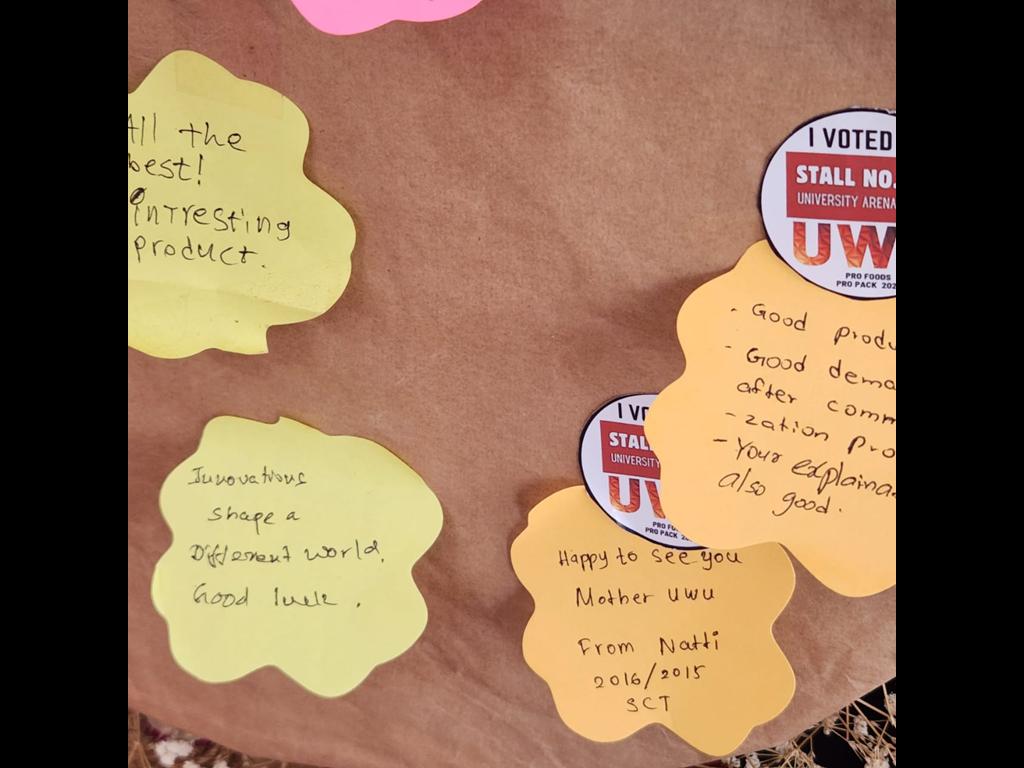 All the
best!
Intresting
product.
I VOTED
STALL NO.
UNIVERSITY ARENA
UW
PRO FOODS
PRO PACK 202
. Good produ
- Good dema
after comm
- zation pro
- Your explaina
also good.
Innovations
shape a
Different world.
Good luck .
I VO
STAL
UNIVERSITY
UW
PRO FO
PRO PACK 2
Happy to see you
Mother uwu
From Natti
2016/2015
SCT